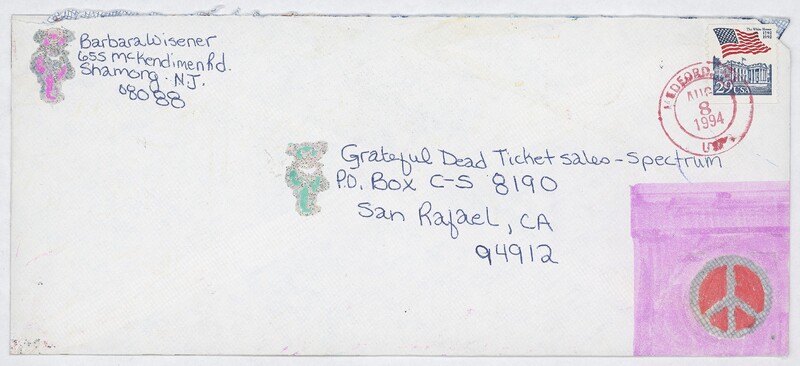 Barbara Wisener
655 McKendimen Rd.
Shamong. N.J.
08088
The White House
29 USA
MEDFORD
AUG
8
1994
Grateful Dead Ticket Sales - Spectrum
P.O. Box C-S 8190
San Rafael, CA
94912